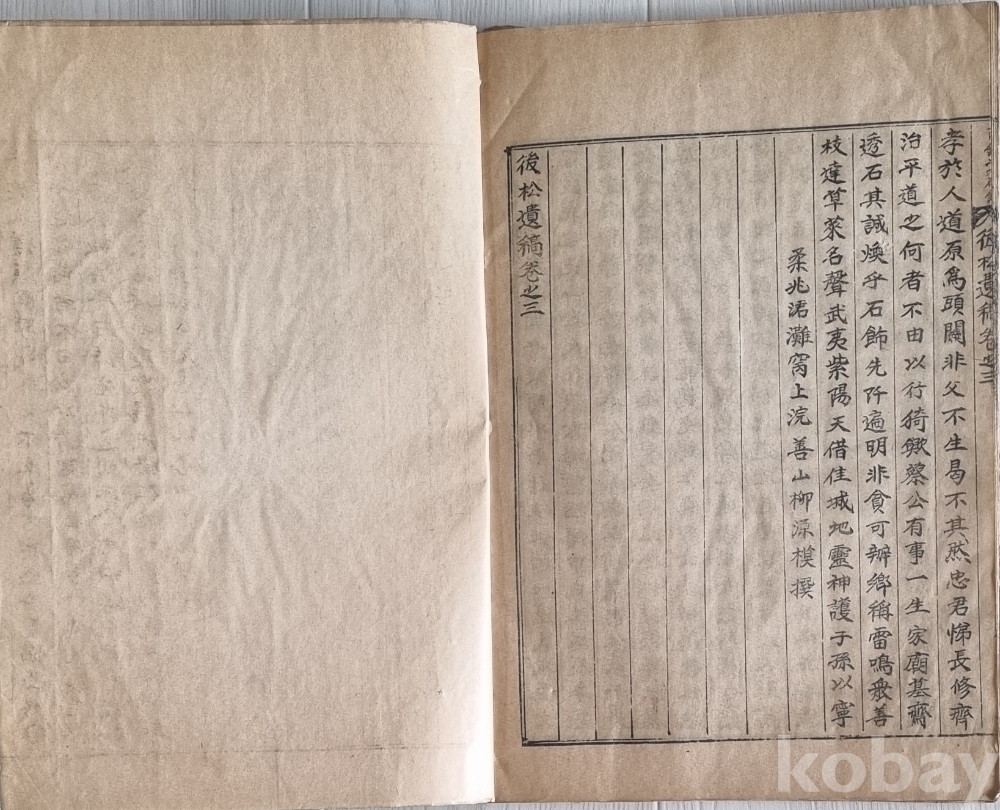 後松遺稿卷之三
孝於人道原爲頭關非父不生曷不其然忠君悌長修齊
治平道之何者不由以行猗歟蔡公有事一生家廟墓齋
透石其誠煥乎石飾先阡遍明非貪可辦鄕稱雷鳴衆善
枝達草萊名聲武夷紫陽天借佳城地靈神護子孫以寧
柔兆涒灘窉上浣善山柳源模撰
後松遺稿卷之三
kobay